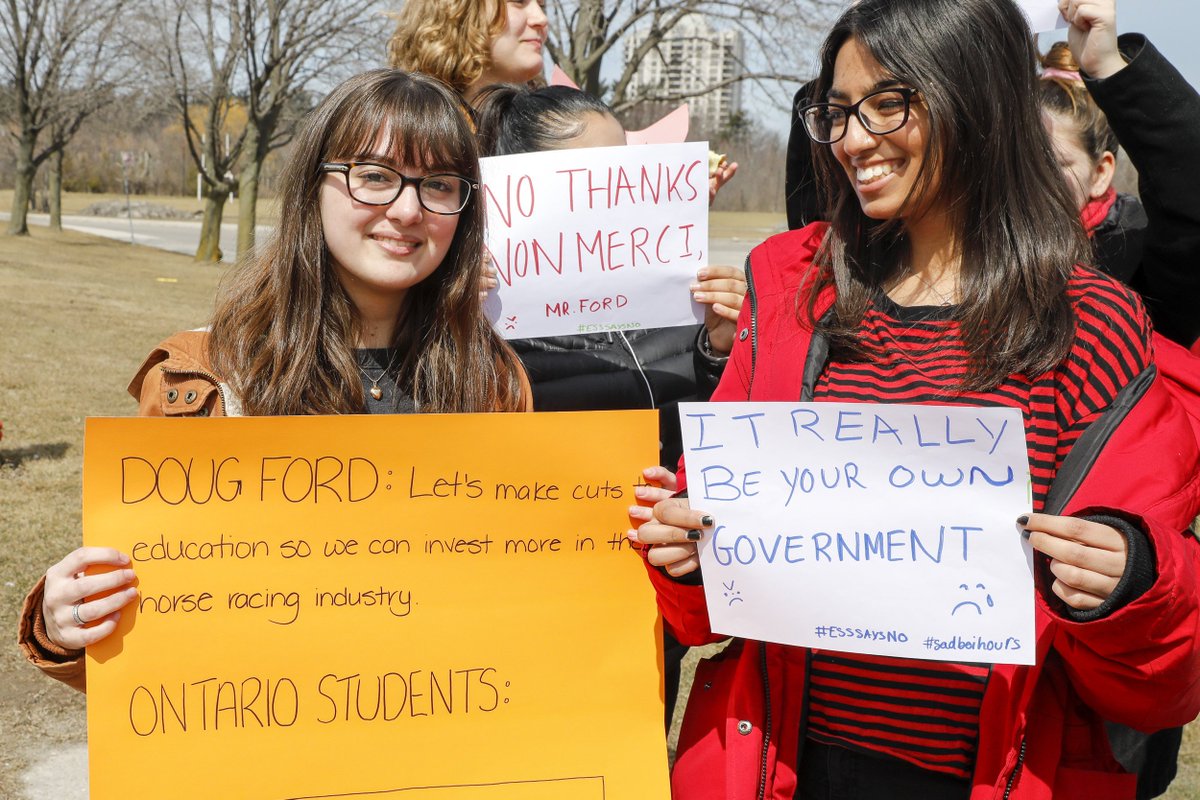 NO THANKS
NON MERCI,
MR. FORD
#ESSSAYSNO
DOUG FORD: Let's make cuts
education so we can invest more in the
horse racing industry.
ONTARIO STUDENTS:
IT REALLY
BE YOUR OWN
GOVERNMENT
#ESSSAYSNO #sadboihours